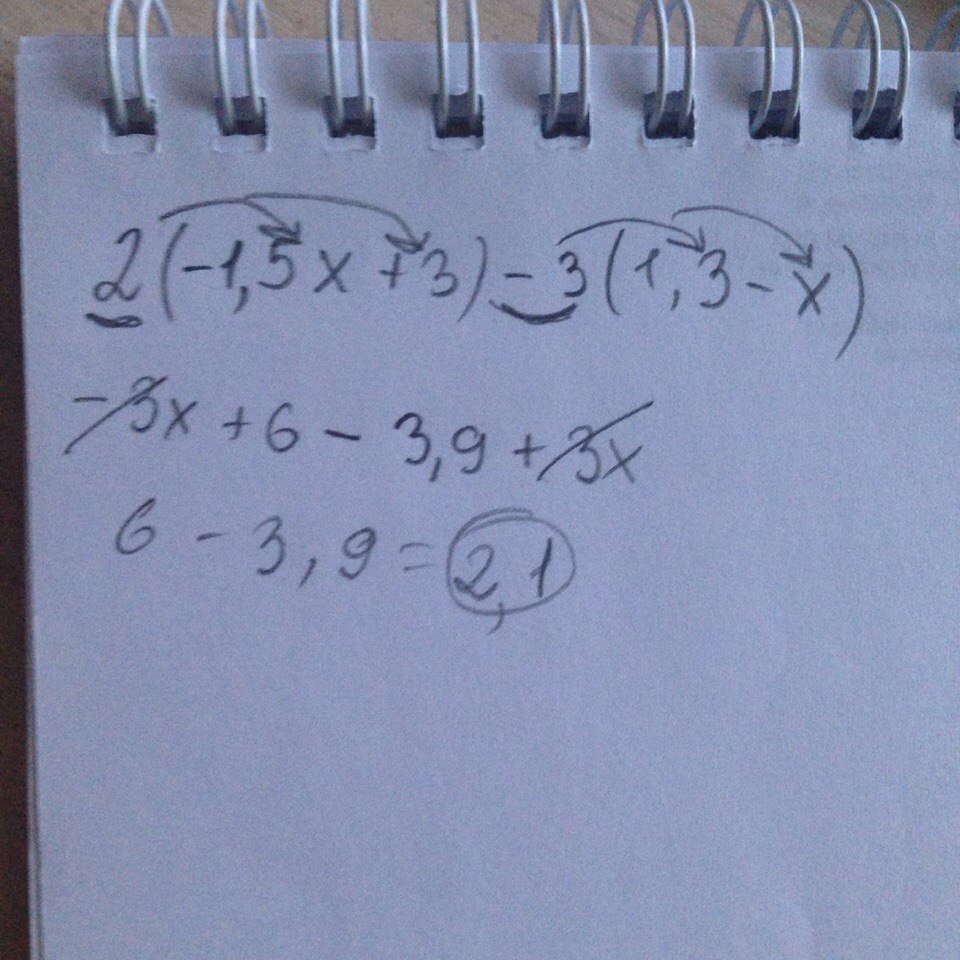 2(-1,5x+3)-3(1,3-x)
-3x+6-3,9+3x
6-3,9=2,1